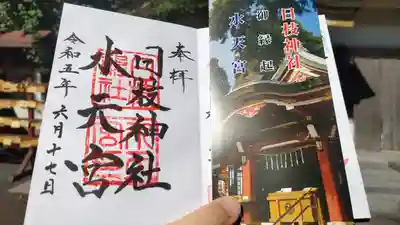 奉拝
日枝神社
水天宮
令和五年六月十七日
日枝神社
御縁起
水天宮